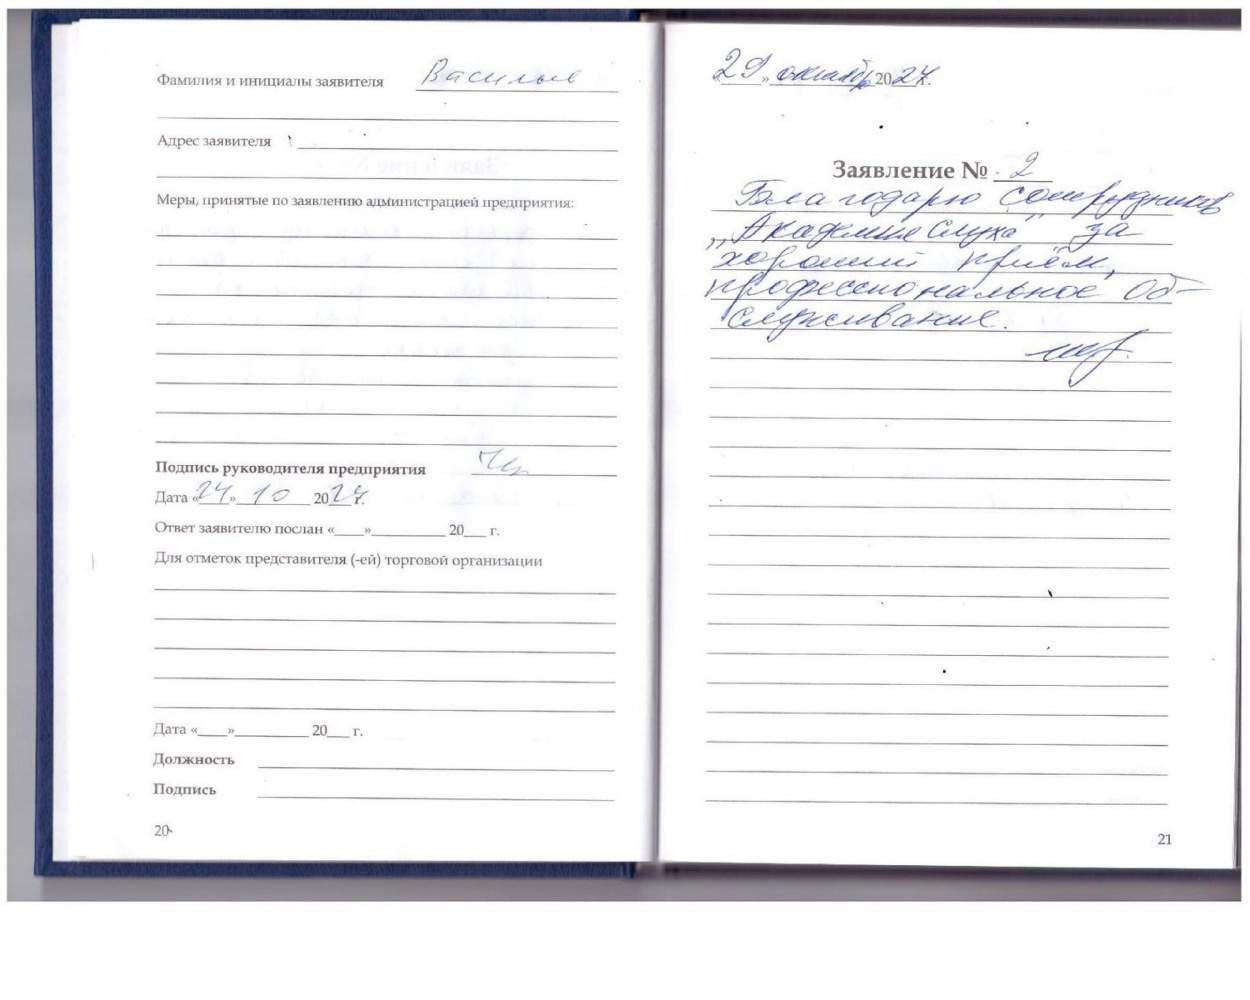 Фамилия и инициалы заявителя
Адрес заявителя
Меры, принятые по заявлению администрацией предприятия:
Подпись руководителя предприятия
Дата «24» 10 2024 г.
Ответ заявителю послан «____»__________ 20___ г.
Для отметок представителя (-ей) торговой организации
Дата «____»__________ 20___ г.
Должность
Подпись
20
29 октября 2024.
Заявление № 2
Благодарю сотрудников
„Академия Слуха" за
хороший приём,
профессиональное об-
служивание.
21